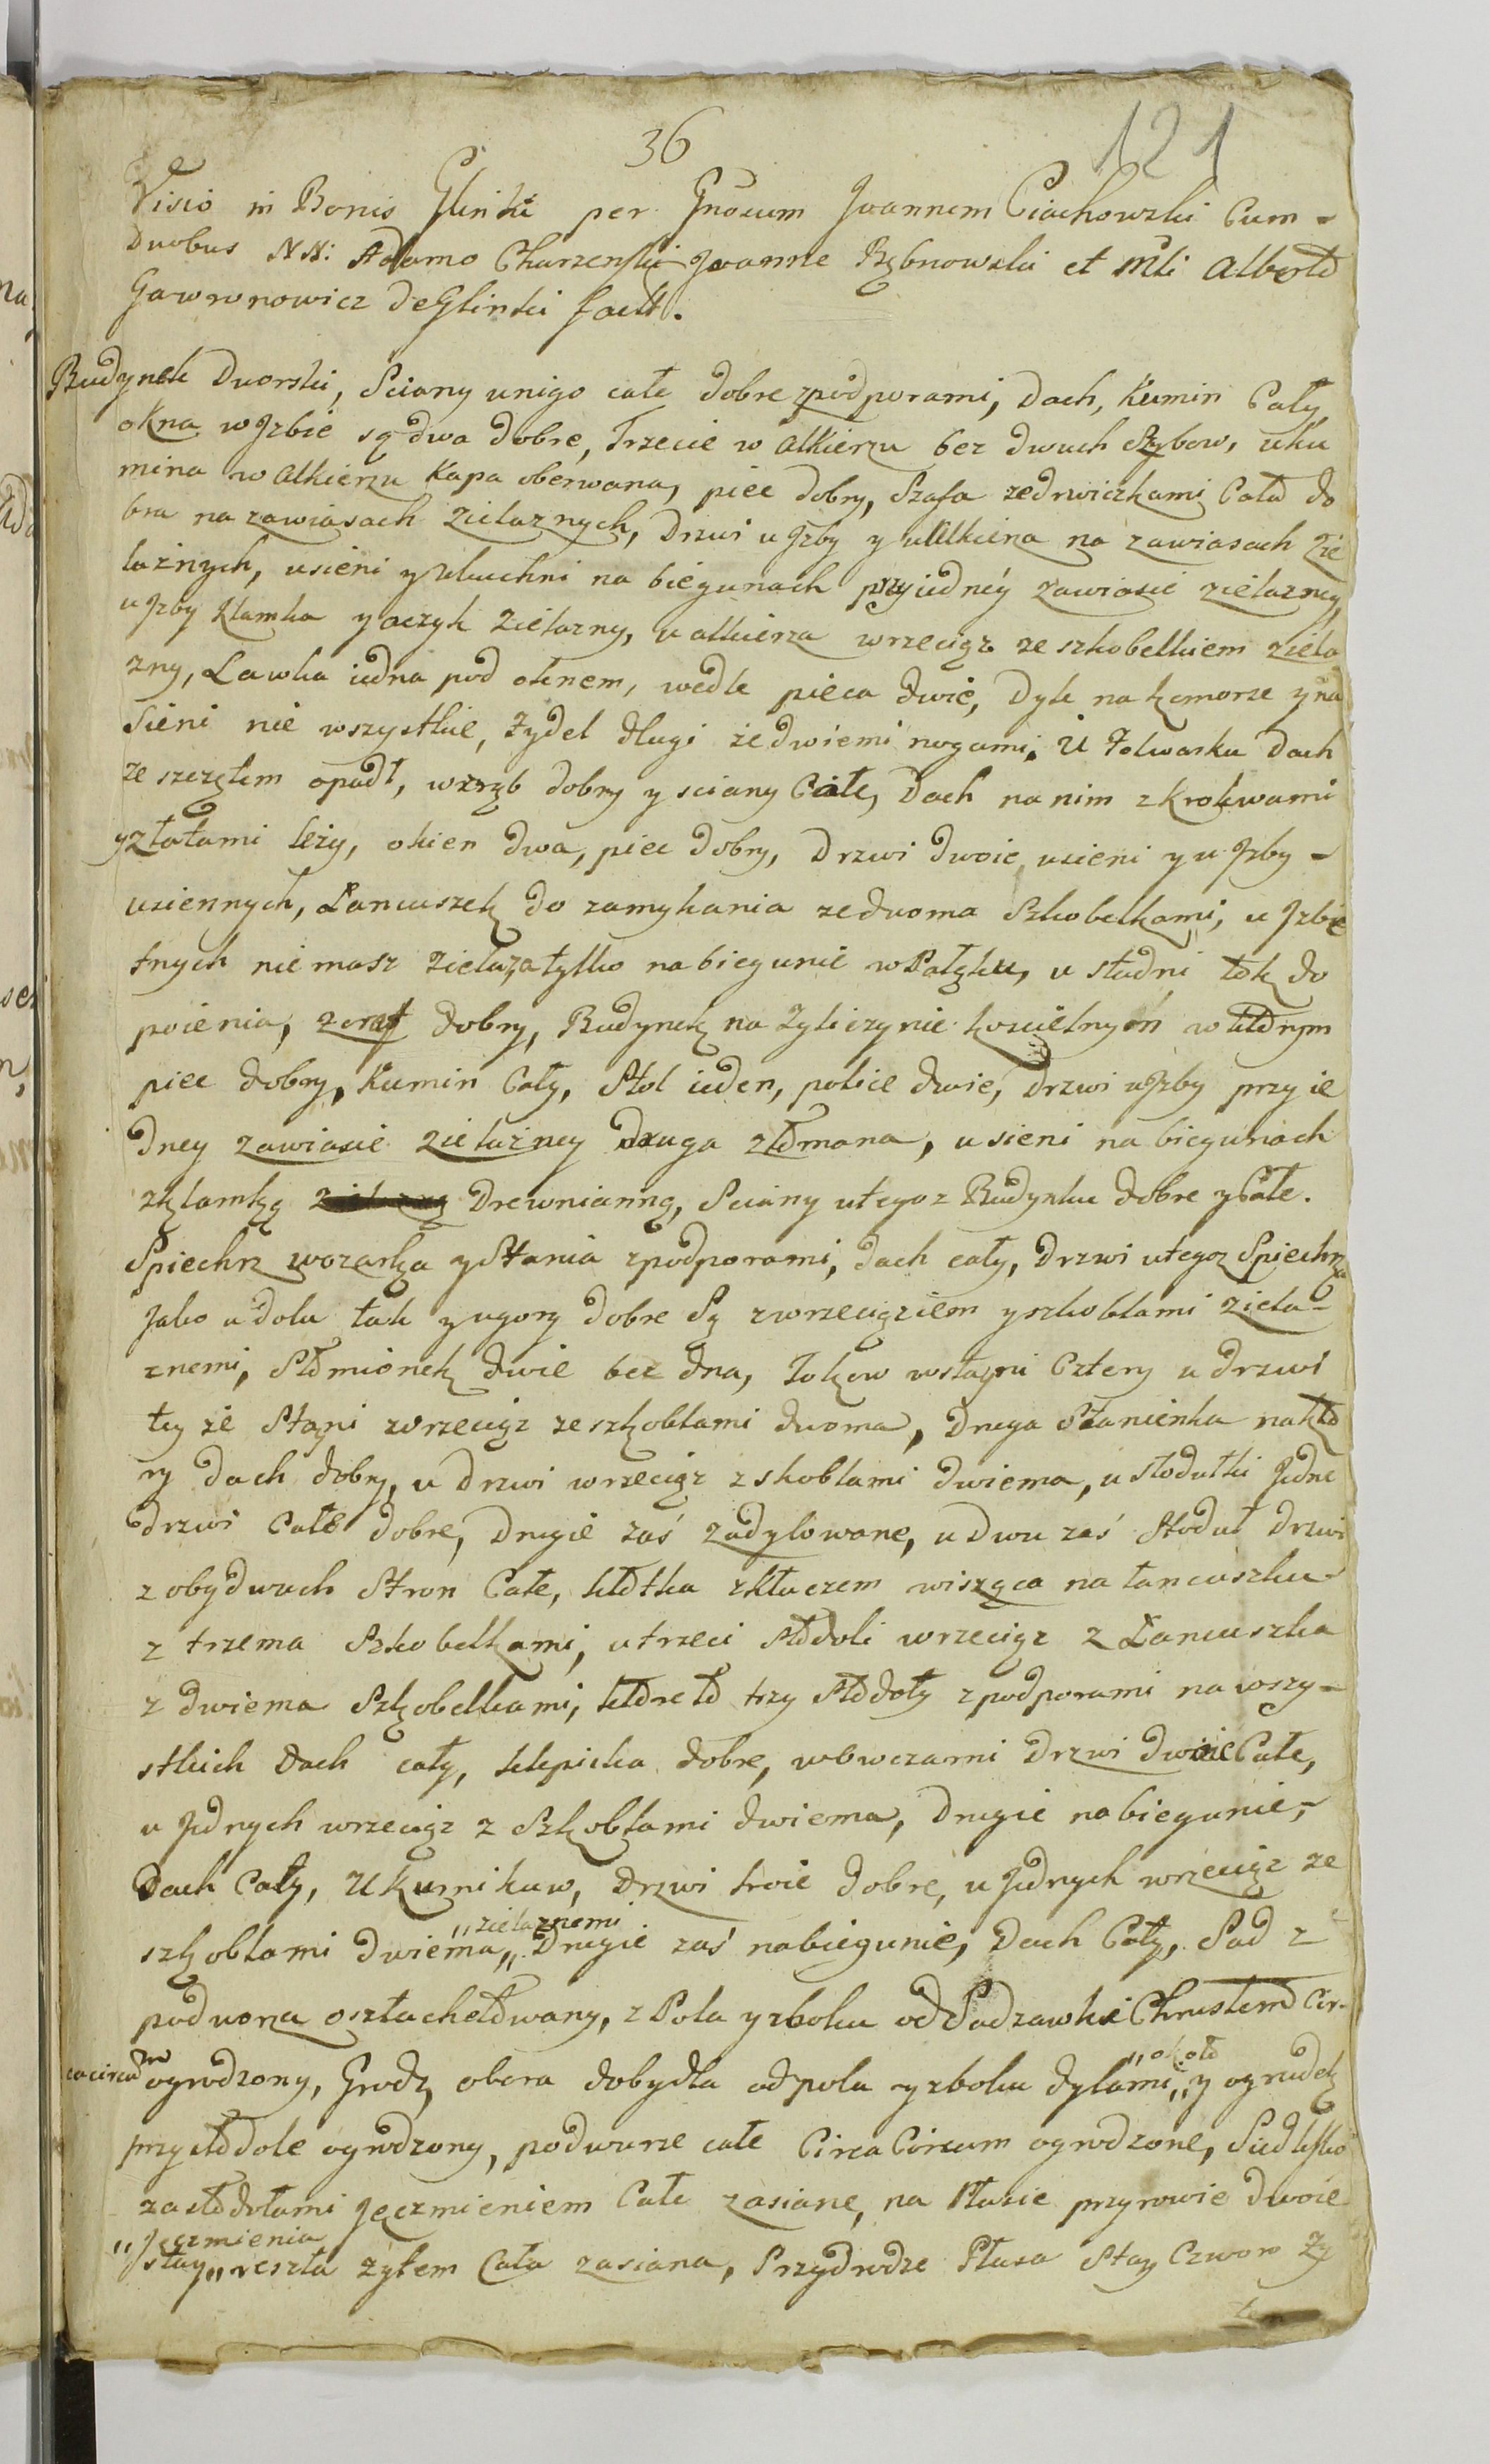 36
121
Visio in Bonis Glinki per Gnosum Joannem Ciachowski Cum-
Duobus NN: Adamo Charzenski Joanne Rębnowski et Mli Alberto
Gawronowicz de Glinki fact.
Budynek Dworski, Sciany unigo całe dobre zpodporami, Dach, Kumin Cały
okna w Jzbie są dwa dobre, Trzecie w Alkierzu bez dwuch Szybow, uku
mina w Alkierzu Kapa oberwana, piec dobry, Szafa zedrwiczkami Cała do
bra na zawiasach zielaznych, Drzwi u Jzby y u Alkierza na zawiasach Zie
laznych, usieni y ukuchni na biegunach przyiedney zawiasie zielazney,
u Jzby klamka y oczyk zielazny, u alkierza wrzeciąz ze szkobelkiem ziela
zny, Lawka iedna pod oknem, wedle pieca dwie, Dyle na komorze y na
Sieni nie wszystkie, zydel dlugi ze dwiemi nogami. U Folwarku Dach
ze szczętem opadł, wzrąb dobry y sciany Całe, Dach na nim z krokwami
y złatami leży, okien dwa, piec dobry, Drzwi dwoie, usieni y u Jzby-
usiennych, Lancuszek do zamykania zedwoma Szkobelkami, u Jzbie
tnych nie masz zielaza tylko nabiegunie w Pałąku, u studni tok do
poienia, dobry, Budynek na Zyliczynie koscielnym w ktorym
piec dobry, Kumin Cały, Stol ieden, police dwie, Drzwi u Jzby przy ie
dney zawiasie zielazney druga złomana, u sieni na biegunach
zklamką Drewnianną, Sciany utegoz Budynku dobre y Całe.
Spiechrz wozarka y Stania zpodporami, Dach cały, Drzwi utegoz Spiechrza
Jako u dolu tak y ugory dobre Są zwrzeciązem y szkoblami ziela-
znemi, Słomionek dwie bez dna, Tokow wstayni Cztery u drzwi
tey ze Stayni wrzeciąz ze szkoblami dwoma, Druga Stanienka na kto
ry dach dobry, u drzwi wrzeciąz z skoblami dwiema, u stodułki Jedne
drzwi Całe dobre, Drugie zaś zadylowane, u Dwu zaś Stoduł drzwi
z obydwuch Stron Całe, kłotka zkłuczem wisząca na łancuszku
z trzema Szkobelkami, utrzeci stodoli wrzeciąz z Lancuszka
z dwiema Szkobelkami, ktore to trzy stodoły z podporami na wszy-
stkich Dach cały, klepiska dobre, wowczarni Drzwi dwoie Całe,
u Jednych wrzeciąz z Szkoblami dwiema, Drugie nabiegunie,-
Dach Cały, U Kurnikuw, Drzwi troie dobre, u Jednych wrzeciąz ze
szkoblami dwiema, „zielaznemi Drugie zaś nabiegunie, Dach Cały, Sad z
podworza osztachetowany, z Pola y zboku od Sadzawki Chrustem Cir-
cacircum ogrodzony, Grodz obora dobydła odpola y zboku dylami, „około y ogrudek
przystodole ogrodzony, podwurze całe Circa Circum ogrodzone, Siedlisko
zastodołami Jęczmieniem Całe zasiane, na Płasie przyrowie dwoie
stay „Jęczmienia reszta zytem Cała zasiana, Przydrodze Płasa Stay Czworo Zy
tem